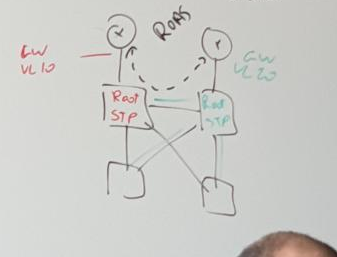 ROAS
GW
VL10
GW
VL20
Root
STP
Root
STP